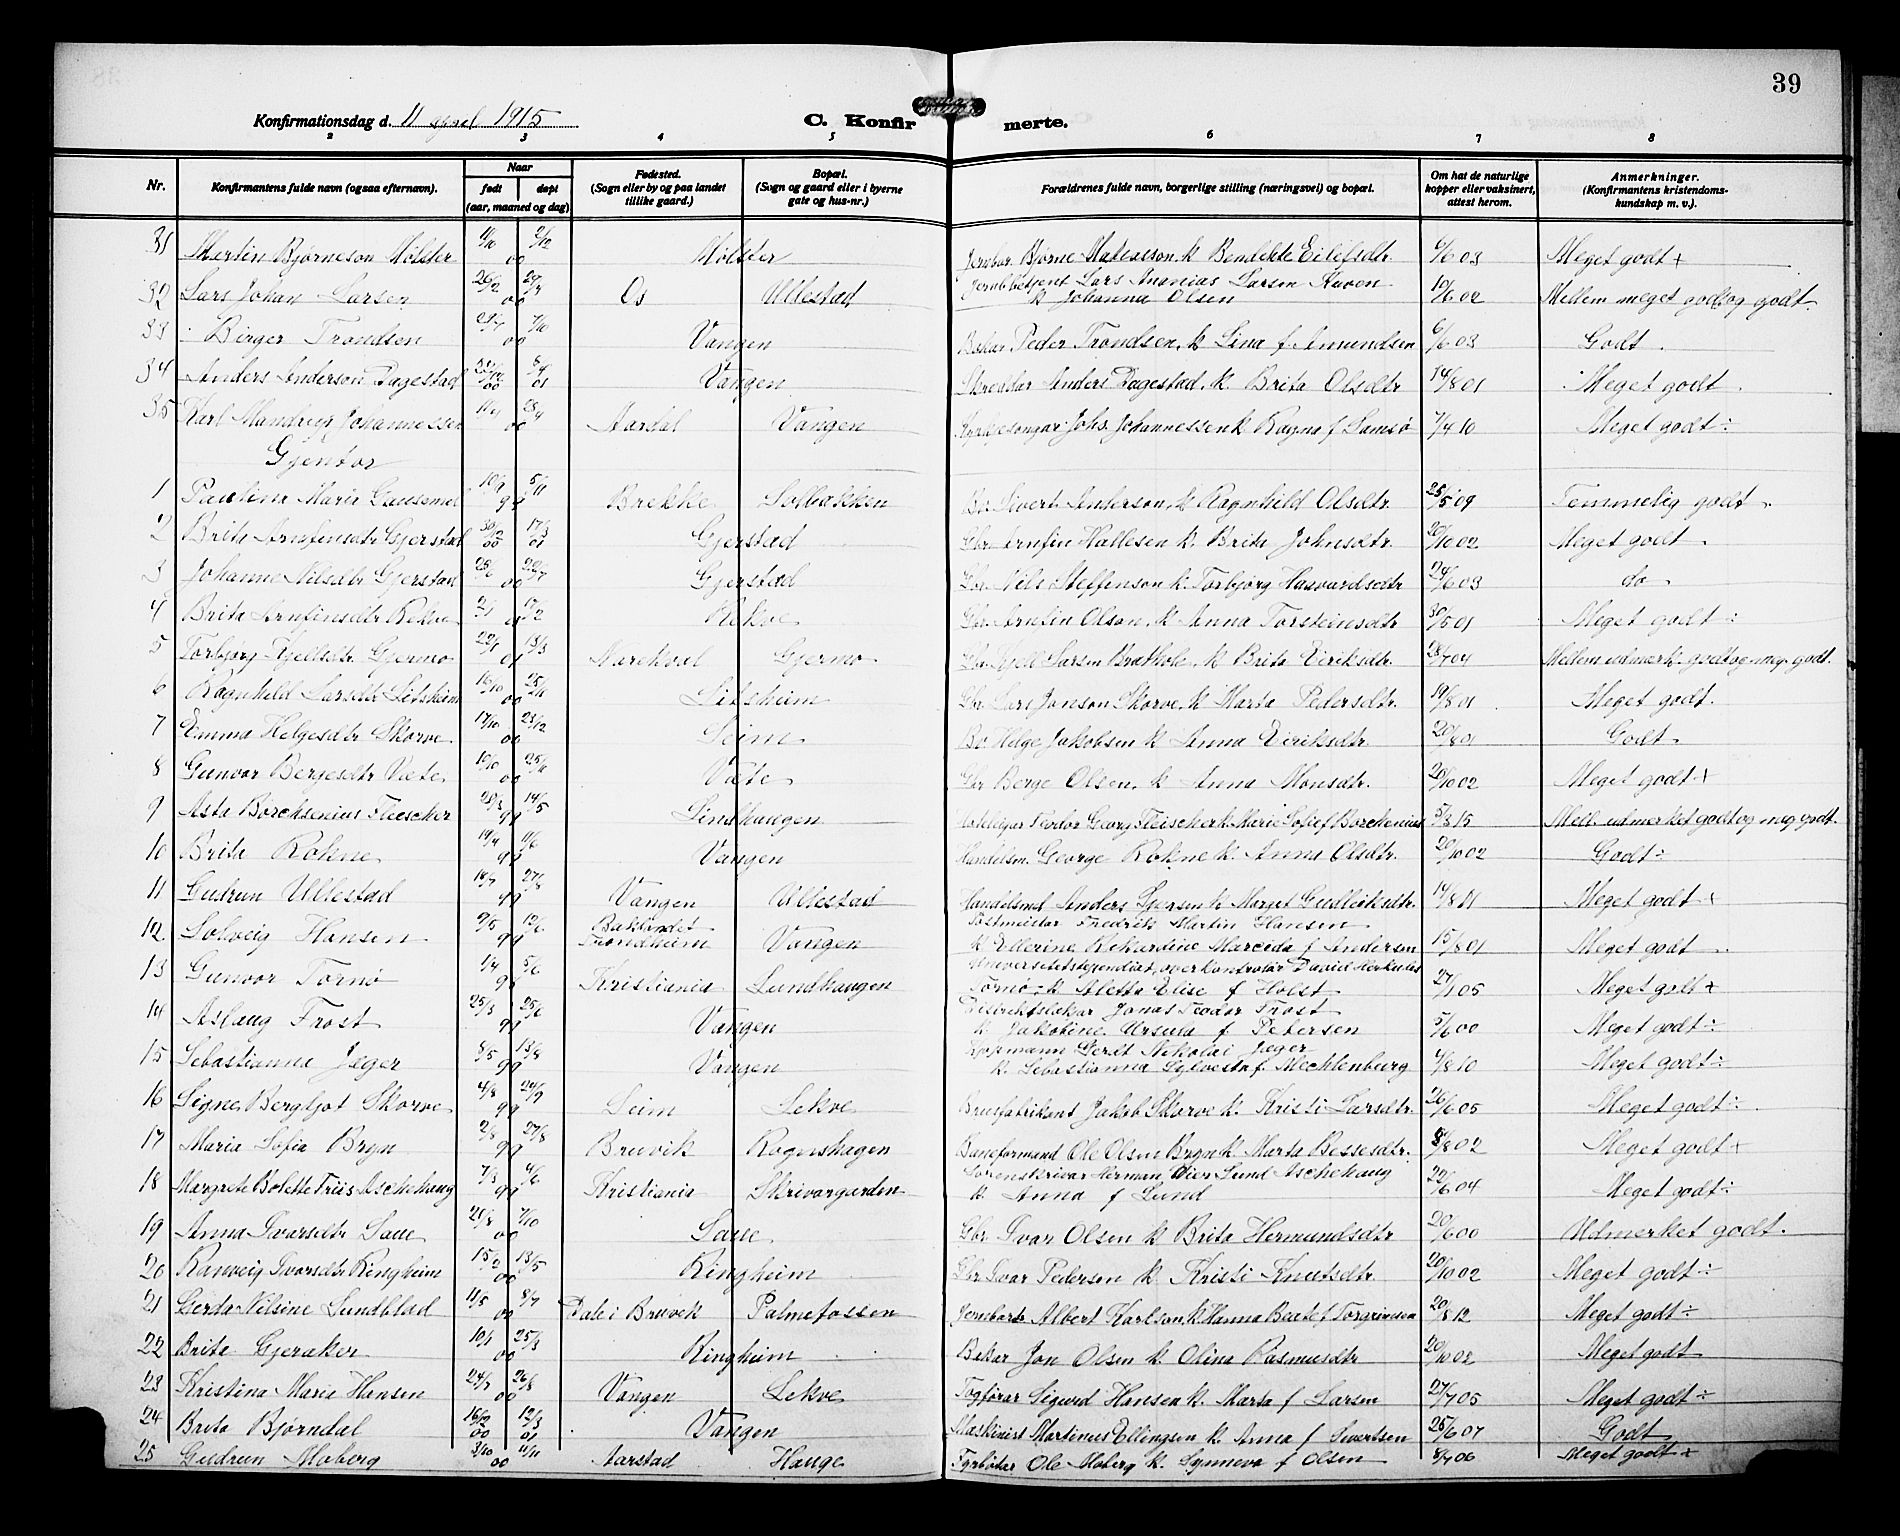 39
Konfirmationsdag d. 11 april 1915
C. Konfirmerte.
2 3 4 5 6 7 8
Nr. Konfirmantens fulde navn (ogsaa efternavn). Naar født døpt (aar, maaned og dag) Fødested. (Sogn eller by og paa landet tillike gaard.) Bopæl. (Sogn og gaard eller i byerne gate og hus-nr.) Forældrenes fulde navn, borgerlige stilling (næringsvei) og bopæl. Om hat de naturlige kopper eller vaksinert, attest herom. Anmerkninger. (Konfirmantens kristendomskundskap m. v.).
31 Martin Bjørneson Mölster 00 Mölster Bjørne k Bendikte Eilefsdtr. 6/6 03 Meget godt +
32 Lars Johan Larsen 26/2 00 Os Ullestad Lars Ananias Larsen k Johanna Olsen 10/6 02 Mellem meget godt og godt.
33 Birger Trondsen 7/10 00 Vangen Bakar Peder Trondsen, k Lina f. Amundsen 6/6 03 Godt.
34 Anders Anderson Dagestad 00 01 Vangen Skreddar Anders Dagestad, k. Brita Olsdtr 14/8 01 Meget godt.
35 Karl Mandrup Johannessen 00 Aardal Vangen Kyrkjesongar Johs. Johannessen k Ragna f Lamsø 7/4 10 Meget godt ÷
Gjentor
1 Paulina Marie 10/9 5/11 99 Brekke Solbakken Sivert Anderson, k Ragnhild Olsdtr. 25/5 09 Temmelig godt.
2 Brita Arnfinsdtr Gjerstad 30/12 00 17/3 01 Gjerstad Gbr. Arnfin Hallesen k. Brita Johnsdtr. 20/10 02 Meget godt.
3 Johanne Nilsdtr Gjerstad 00 Gjerstad Gbr. Nils Steffenson k. Torbjørg Haavardsdtr 24/6 03 do
4 Brita Arnfinsdtr Rekve 2/1 17/2 Rekve Gbr. Arnfin Olson, k Anna Torsteinsdtr 30/5 01 Meget godt ÷
5 Torbjørg Kjellsdtr. Gjermo 22/1 13/3 01 Gjermo Gbr. Kjell Larsen k Brita Eiriksdtr. 28/7 04 Mellem udmerk. godt og meg. godt.
6 Ragnhild Larsdtr Litsheim 16/10 25/11 00 Litsheim Gbr. Lars Jonson Skorve, k Marta Pedersdtr. 19/8 01 Meget godt.
7 Emma Helgesdtr Skorve 17/10 23/12 00 Seim Helge Jakobsen k Anna Eiriksdtr. 20/8 01 Godt
8 Gunvor Bergesdtr Væte 10/10 25/11 00 Væte Gbr Berge Olsen, k Anna Monsdtr. 20/10 02 Meget godt +
9 Asta Borchsenius Fleischer 14/5 99 Lindhaugen Teodor Georg Fleischer k. Marie Sofie f Borchenius 5/3 15 Mell. udmerket godt og meg godt.
10 Brita Rokne 19/4 11/6 99 Vangen Handelsm. George Rokne k. Anna Olsdtr. 20/10 02 Godt ÷
11 Gudrun Ullestad 27/8 99 Vangen Ullestad Handelsmd Anders k Marget Gudleiksdtr. 14/8 11 Meget godt +
12. Solveig Hansen 9/5 99 Baklandet Trondheim Vangen Postmeister Fredrik Martin Hansen k Ellerine Rikardine f Andersen 15/8 01 Meget godt
13 Gunvor Tornø 1/4 5/6 99 Kristiania Lundhaugen Universitetsstipendiat, overkontrolør David Herkules Tornø k Aletta Elise f Holst 27/1 05 Meget godt +
14 Aslaug Frost 25/3 25/6 99 Vangen Distriktslækar Jonas Teodor Frost k Jakobine Ursula f Petersen 5/6 00 Meget godt ÷
15 Sebastianne Jæger 8/5 13/8 99 Vangen Kjøpmann Gerdt Nikolai Jæger k. Sebastianna Sylvesta f Mechlenburg 4/8 10 Meget godt ÷
16 Signe Bergljot Skorve 4/8 24/9 99 Seim Lekve Brusfabrikant Jakob Skorve k. Kristi Larsdtr. 26/6 05 Meget godt ÷
17 Maria Sofia Bryn 2/8 27/8 99 Bruvik Rognshagen Baneformand Ole Olsen Bryn k. Marta Bessesdtr. 8/8 02 Meget godt +
18 Margrete Bolette Friis Aschehaug 7/3 4/6 99 Kristiania Skrivargarden Sorenskrivar Herman Lund Aschehaug k. Anna f Lund 22/6 04 Meget godt ÷
19 Anna Ivarsdtr Saue 21/8 7/10 00 Saue Gbr. Ivar Olsen k Brita Hermundsdtr 20/6 00 Udmerket godt.
20 Ranveig Ivarsdtr Ringheim 15/2 13/5 00 Ringheim Gbr Ivar Pedersen k. Kristi Knutsdtr. 20/10 02 Meget godt ÷
21 Gerda Nilsine Lundblad 11/5 8/7 00 Dale i Bruvik Palmefossen Albert Karlson, k. Hanna Beate f Torgrimsen 20/8 12 Meget godt ÷
22 Brita Gjeraker 10/1 25/3 00 Ringheim Bakar Jon Olsen k. Olina Rasmusdtr 20/10 02 Meget godt
23 Kristina Marie Hansen 24/7 26/8 00 Vangen Lekve Togførar Sigurd Hansen k. Marta f Larsen 27/7 05 Meget godt ÷
24 Brita Bjørndal 16/12 00 12/3 01 Vangen Maskinist Martinus Ellingsen k. Anna f Sivertsen 25/6 07 Godt
25 Gudrun Moberg 3/10 11/11 00 Aarstad Hauge Fyrbøtar Ole Moberg k. Synneva f Olsen 8/7 06 Meget godt ÷